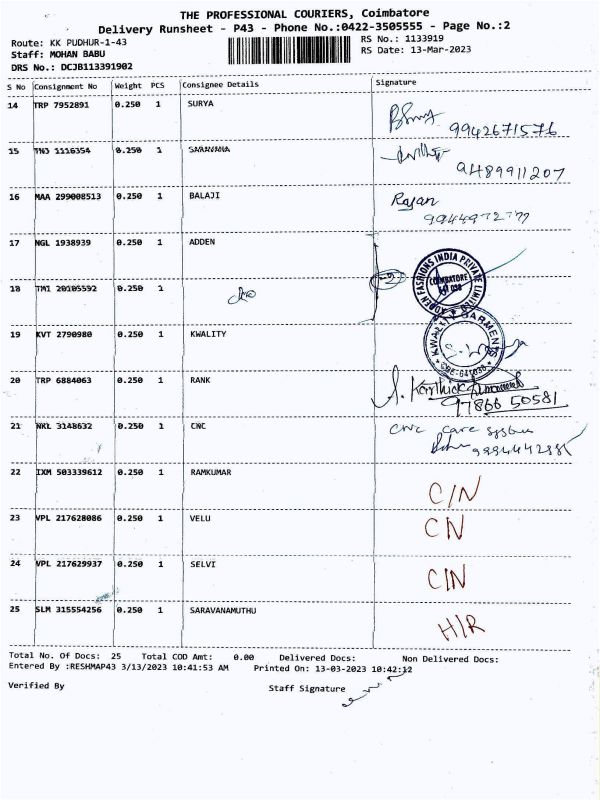 THE PROFESSIONAL COURIERS, Coimbatore
Delivery Runsheet - P43 - Phone No.:0422-3505555 - Page No.:2
Route: KK PUDHUR-1-43 RS No.: 1133919
Staff: MOHAN BABU RS Date: 13-Mar-2023
DRS No.: DCJB113391902
S No Consignment No Weight PCS Consignee Details Signature
14 TRP 7952891 0.250 1 SURYA
9942671576
15 TNJ 1116354 0.250 1 SARAVANA
9489911207
16 MAA 299008513 0.250 1 BALAJI Rajan
17 NGL 1938939 0.250 1 ADDEN
ADDEN FASHIONS INDIA PRIVATE LIMITED
COIMBATORE
18 TM1 20105592 0.250 1 do
19 KVT 2790980 0.250 1 KWALITY
KWALITY GARMENTS
CBE-641038
20 TRP 6884063 0.250 1 RANK
A. Karthick
97866 50581
21 NKL 3148632 0.250 1 CNC CNC care system
22 IXM 503339612 0.250 1 RAMKUMAR C/N
23 VPL 217628086 0.250 1 VELU CN
24 VPL 217629937 0.250 1 SELVI C/N
25 SLM 315554256 0.250 1 SARAVANAMUTHU H/R
Total No. Of Docs: 25 Total COD Amt: 0.00 Delivered Docs: Non Delivered Docs:
Entered By :RESHMAP43 3/13/2023 10:41:53 AM Printed On: 13-03-2023 10:42:12
Verified By Staff Signature